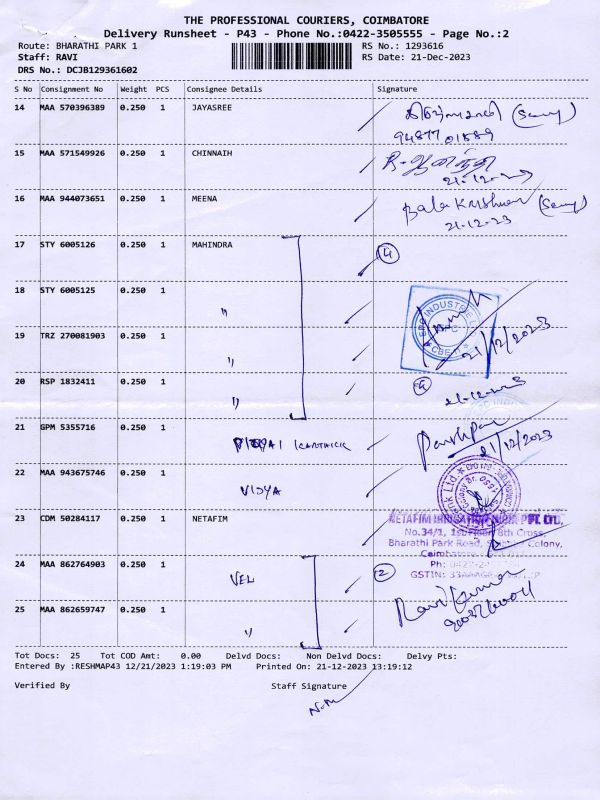 THE PROFESSIONAL COURIERS, COIMBATORE
Delivery Runsheet - P43 - Phone No.:0422-3505555 - Page No.:2
Route: BHARATHI PARK 1 RS No.: 1293616
Staff: RAVI RS Date: 21-Dec-2023
DRS No.: DCJB129361602
S No Consignment No Weight PCS Consignee Details Signature
14 MAA 570396389 0.250 1 JAYASREE
15 MAA 571549926 0.250 1 CHINNAIH
21-12-
16 MAA 944073651 0.250 1 MEENA Bala Krishnan
21-12-23
17 STY 6005126 0.250 1 MAHINDRA 4
18 STY 6005125 0.250 1 "
19 TRZ 270081903 0.250 1 " 21/12/2023
20 RSP 1832411 0.250 1 " 4
21 GPM 5355716 0.250 1 KARTHICK 21/12/2023
22 MAA 943675746 0.250 1 VIDYA
23 CDM 50284117 0.250 1 NETAFIM NETAFIM IRRIGATION INDIA PVT. LTD.
No.34/1, 1st Floor, 8th Cross,
Bharathi Park Road, Colony,
Coimbatore
Ph: 0422-
GSTIN:
24 MAA 862764903 0.250 1 VEL 2
Ravi Kumar
25 MAA 862659747 0.250 1 "
Tot Docs: 25 Tot COD Amt: 0.00 Delvd Docs: Non Delvd Docs: Delvy Pts:
Entered By :RESHMAP43 12/21/2023 1:19:03 PM Printed On: 21-12-2023 13:19:12
Verified By Staff Signature